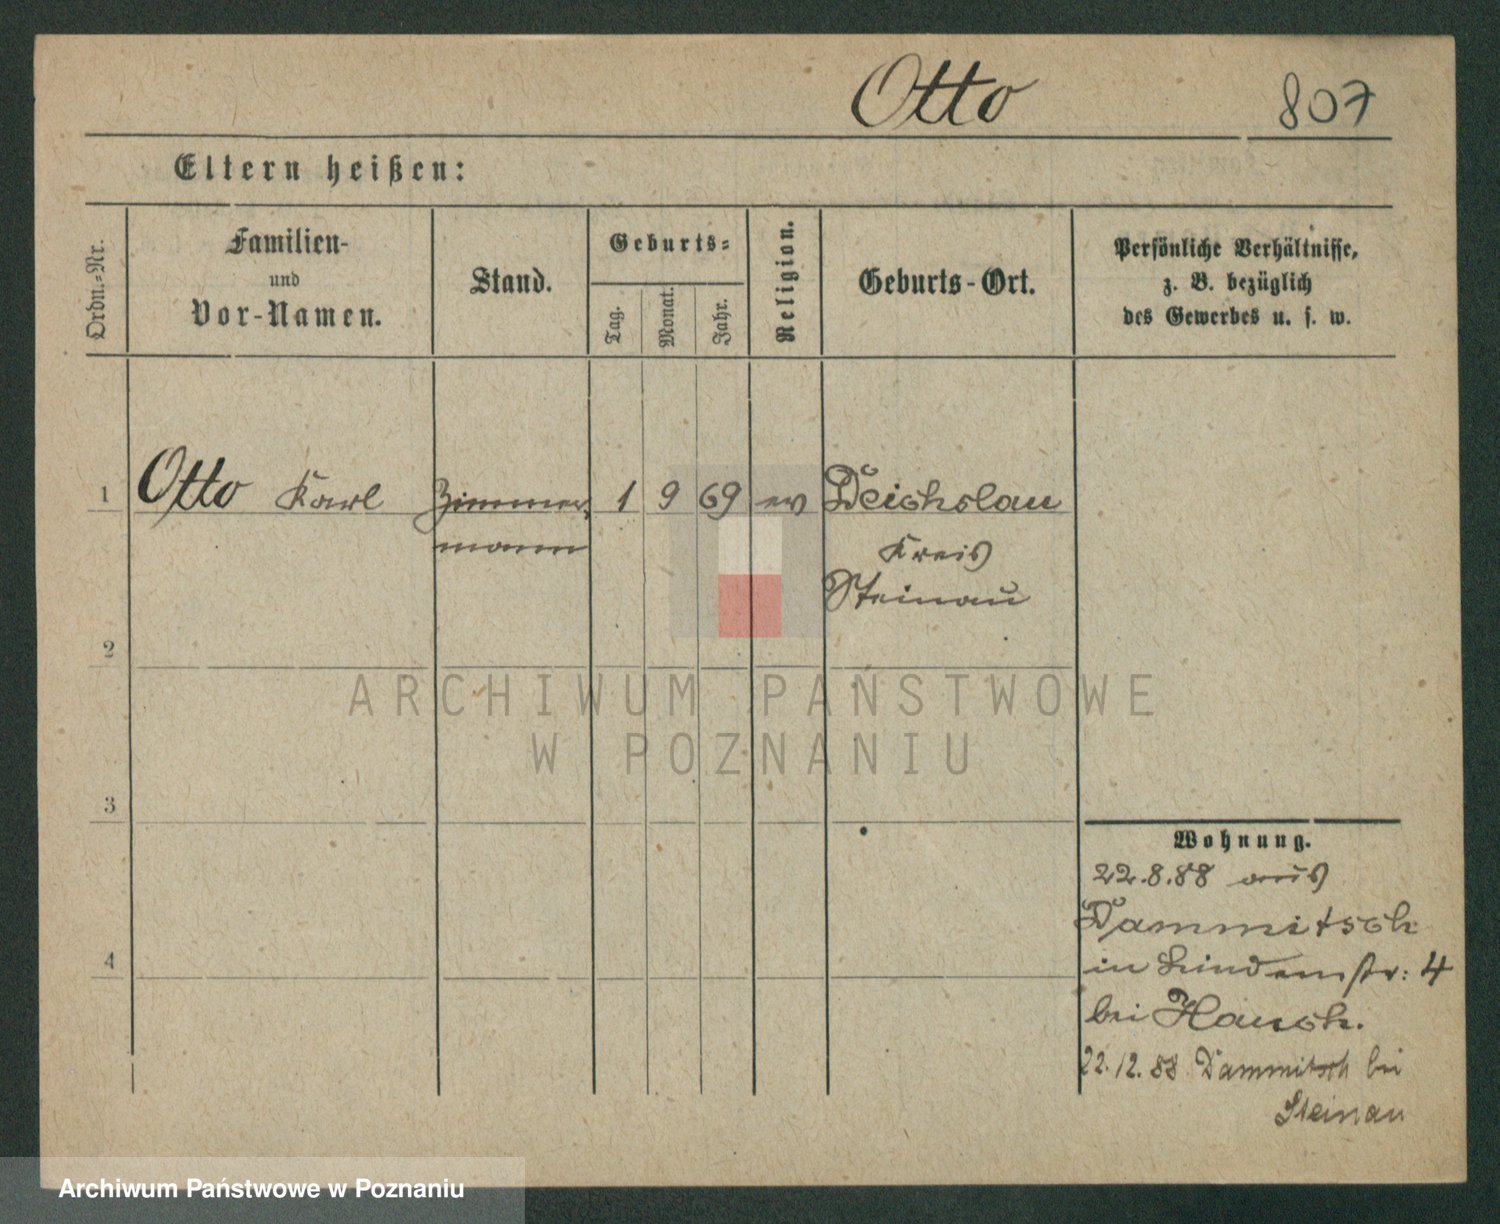 Otto 807
Eltern heißen:
Ordn.-Nr.
Familien-
und
Vor-Namen.
Stand.
Geburts-
Tag.
Monat.
Jahr.
Religion.
Geburts-Ort.
Persönliche Verhältnisse,
z. B. bezüglich
des Gewerbes u. s. w.
1 Otto Karl Zimmer- 1 9 69 ev Deichslau
mann
Kreis
Steinau
2
3
4
Wohnung.
22.8.88 aus
Dammitsch
in Lindenstr: 4
bei Hausch.
22.12.88 Dammitsch bei
Steinau
ARCHIWUM PAŃSTWOWE
W POZNANIU
Archiwum Państwowe w Poznaniu